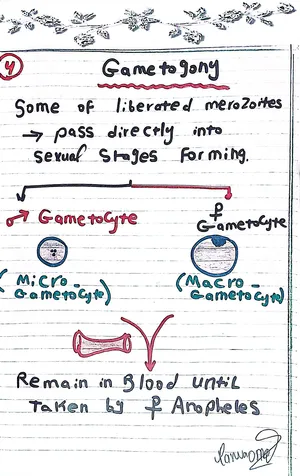 4
Gametogony
Some of liberated merozoites
→ pass directly into
sexual stages forming.
♂ Gametocyte
♀ Gametocyte
(Micro-
Gametocyte)
(Macro-
Gametocyte)
Remain in Blood until
Taken by ♀ Anopheles